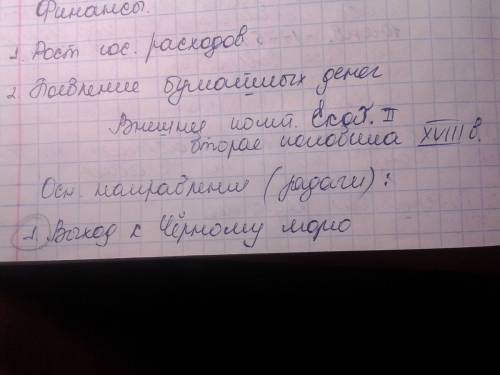 Финансы.
1. Рост гос. расходов
2. Появление бумажных денег
Внешняя полит. Екат. II
вторая половина XVIII в.
Осн. направления (задачи):
1. Выход к Чёрному морю